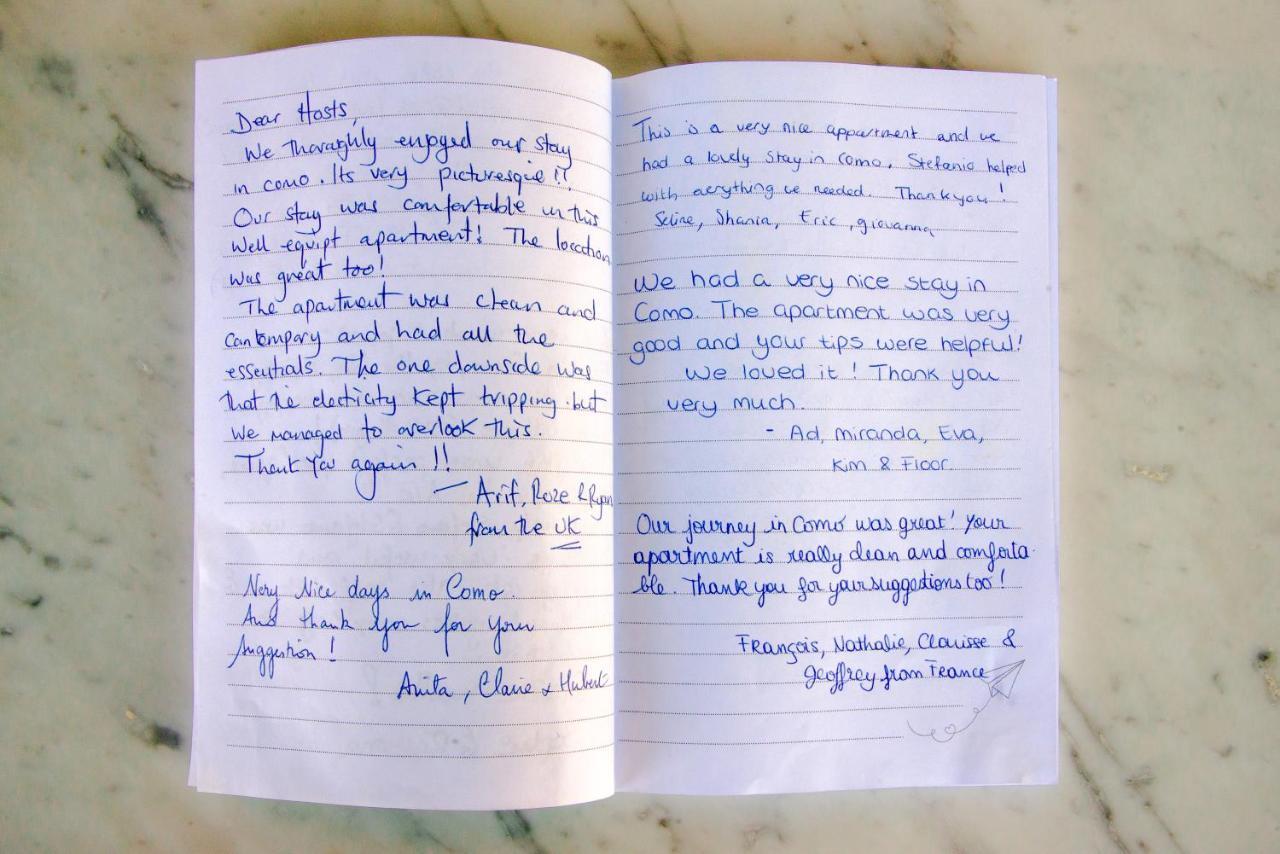 Dear Hosts,
We thoraghly enjoyed our stay
in como. Its very picturesque!!
Our stay was comfortable in this
Well equipt apartment! The location
was great too!
The apartment was clean and
contempary and had all the
essentials. The one downside was
that the electicity kept tripping but
we managed to overlook this.
Thank you again!!
— Arif, Roze & Ryan
from the UK
Very Nice days in Como.
And thank you for your
suggestion!
Anita, Claire & Hubert
This is a very nice appartment and we
had a lovely stay in como. Stefania helped
with aerything we needed. Thank you!
Seline, Shania, Eric, giovanna
We had a very nice stay in
Como. The apartment was very
good and your tips were helpful!
We loved it! Thank you
very much.
- Ad, miranda, Eva,
Kim & Floor.
Our journey in Como was great! Your
apartment is really clean and comforta-
ble. Thank you for your suggestions too!
François, Nathalie, Clouisse &
Geoffrey from France